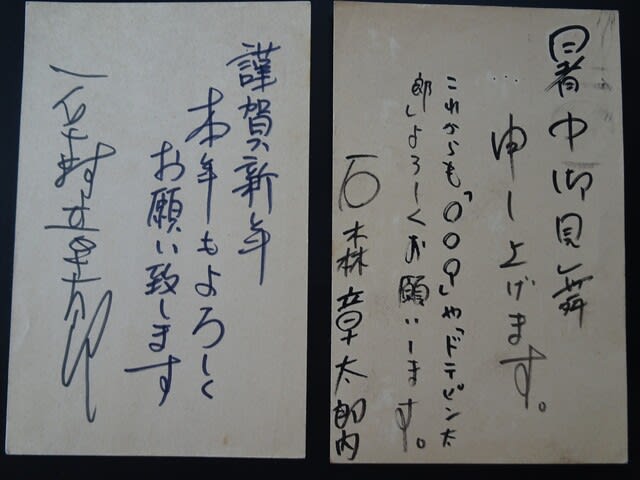 暑中御見舞
…申し上げます。
これからも「009」や「ドテピン太
郎」よろしくお願いします。
石森章太郎内
謹賀新年
本年もよろしく
お願い致します